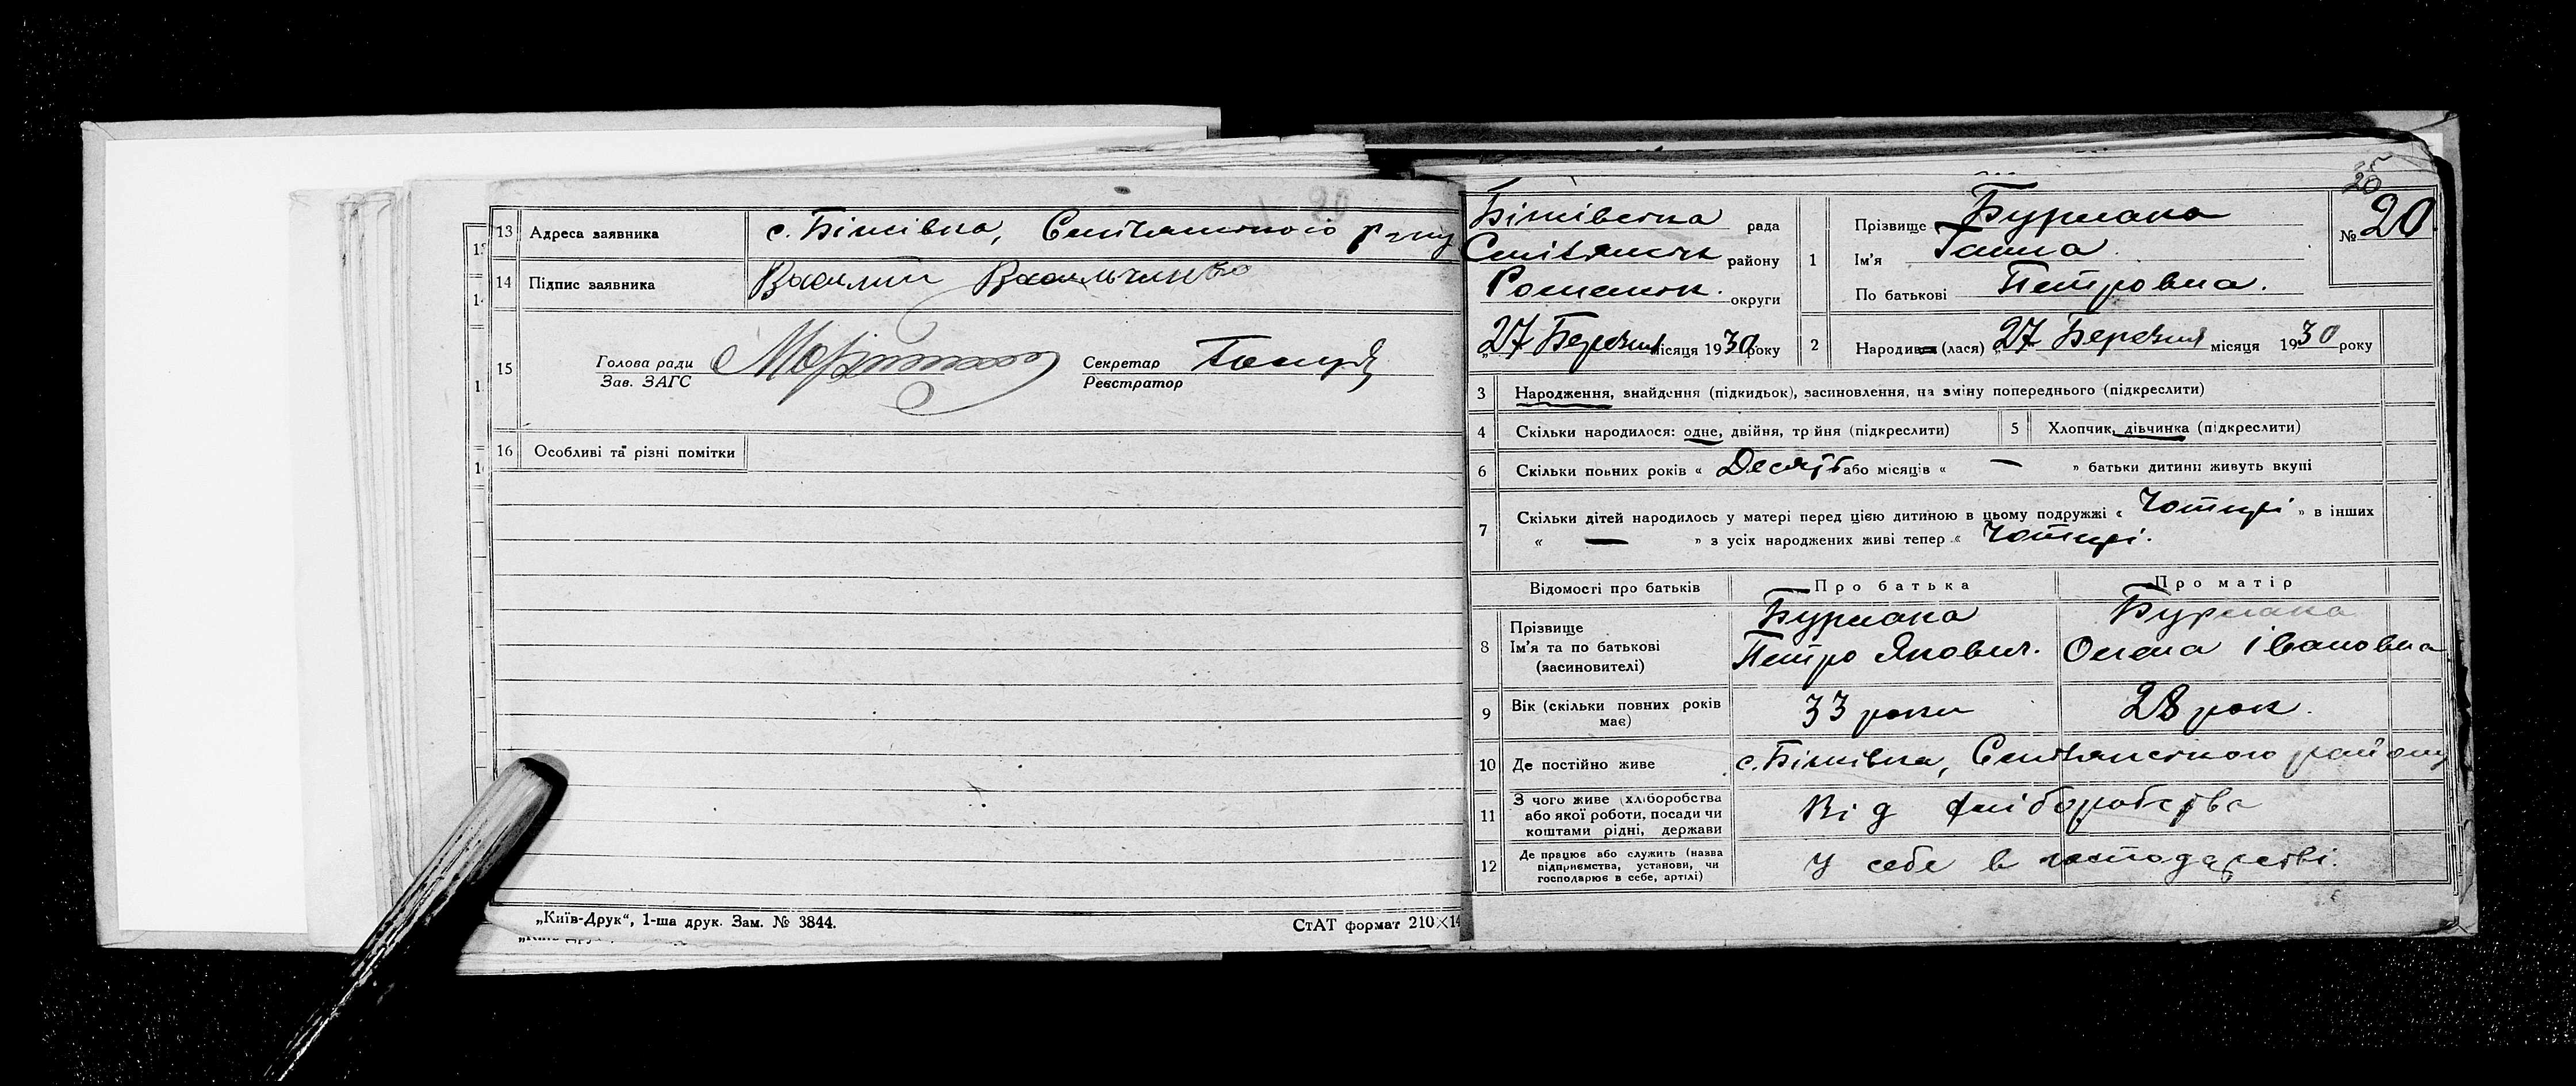 13 Адреса заявника с. Бішівка, Сенчанського р-ну
14 Підпис заявника
15 Голова ради
Зав. ЗАГС
Секретар
Реєстратор
16 Особливі та різні помітки
„Київ-Друк“, 1-ша друк. Зам. № 3844.
СтАТ формат 210×14
25
№ 20
рада
району
Роменськ. округи
27 Березня місяця 1930 року
1 Прізвище Бурлака
Ім'я Ганна
По батькові Петровна.
2 Народився (лася) „27 Березня місяця 1930 року
3 Народження, знайдення (підкидьок), засиновлення, на зміну попереднього (підкреслити)
4 Скільки народилося: одне, двійня, трійня (підкреслити)
5 Хлопчик, дівчинка (підкреслити)
6 Скільки повних років « Десять або місяців « — » батьки дитини живуть вкупі
7 Скільки дітей народилось у матері перед цією дитиною в цьому подружжі « Чотирі » в інших
« — » з усіх народжених живі тепер « Чотирі.
Відомості про батьків
Про батька
Про матір
8 Прізвище
Ім'я та по батькові
(засиновителі)
Бурлака
Петро Якович.
Бурлака
Олена Івановна
9 Вік (скільки повних років
має)
33 роки
28 рок.
10 Де постійно живе с. Бішівка, Сенчанського району
11 З чого живе (хліборобства
або якої роботи, посади чи
коштами рідні, держави
Від хліборобства
12 Де працює або служить (назва
підприємства, установи, чи
господарює в себе, артілі)
У себе в господарстві.